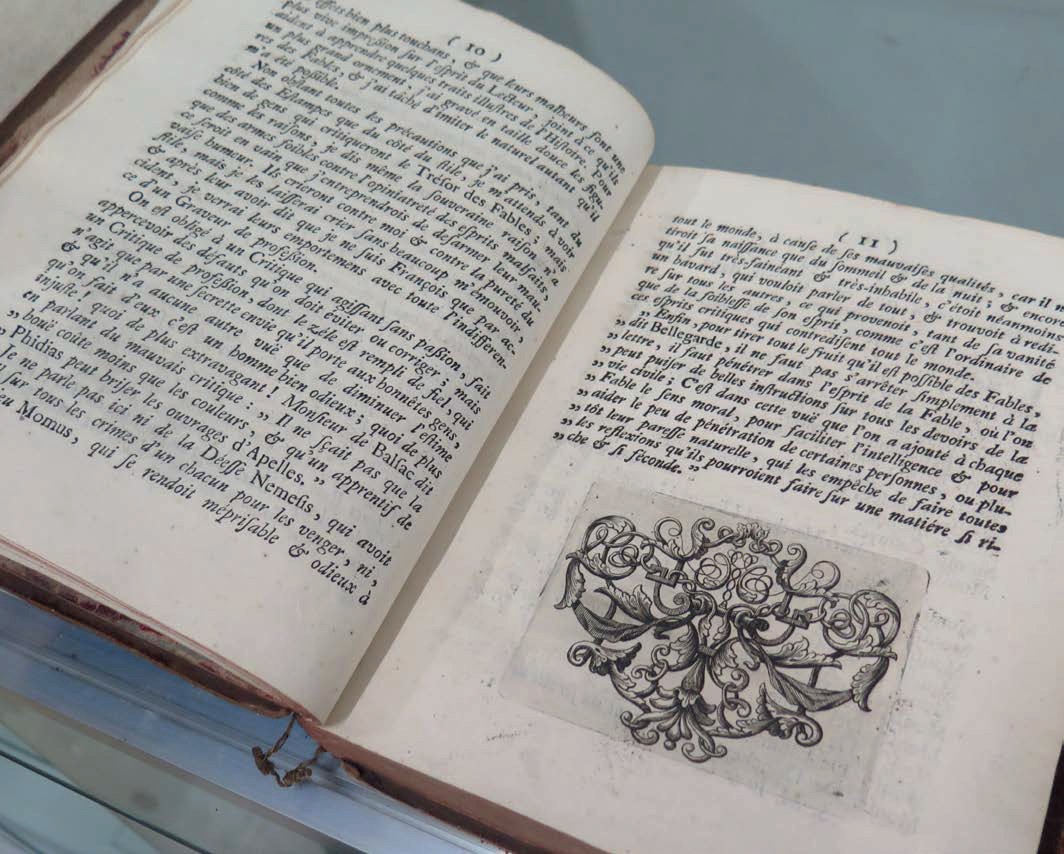 ( 10 )
effets bien plus touchans, & que leurs malheurs font une
plus vive impreſſion ſur l'eſprit du Lecteur; joint à ce qu'ils
aident à apprendre quelques traits illuſtres de l'Hiſtoire. Pour
un plus grand ornement, j'ai gravé en taille douce les figu-
res des Fables, & j'ai tâché d'imiter le naturel autant qu'il
m'a été poſſible.
Non obſtant toutes les précautions que j'ai pris, tant du
côté des Eſtampes que du côté du ſtile, je m'attends à voir
bien de gens qui critiqueront le Tréſor des Fables; mais
comme les raiſons, je dis même la ſouveraine raiſon, n'a
que des armes foibles contre l'opiniatreté des eſprits malfaits,
ce ſeroit en vain que j'entreprendrois de deſarmer leur mau-
vaiſe humeur. Ils crieront contre moi & contre la pureté du
ſtile, mais je les laiſſerai crier ſans beaucoup m'émouvoir,
& après leur avoir dit que je ne ſuis François que par ac-
cident, je verrai leurs emportemens avec toute l'indifféren-
ce d'un Graveur de profeſſion.
On eſt obligé à un Critique qui agiſſant ſans paſſion, fait
appercevoir des défauts qu'on doit éviter ou corriger; mais
un Critique de profeſſion, dont le zéle eſt rempli de fiel, qui
n'agit que par une ſecrette envie qu'il porte aux honnêtes gens,
& qu'il n'a aucune autre vuë que de diminuer l'eſtime
qu'on fait d'eux c'eſt un homme bien odieux; quoi de plus
injuſte! quoi de plus extravagant! Monſieur de Balſac dit
en parlant du mauvais critique: „ Il ne ſçait pas que la
„ bouë coûte moins que les couleurs, & qu'un apprentif de
„ Phidias peut briſer les ouvrages d'Apelles. „
Je ne parle pas ici ni de la Déeſſe Nemeſis, qui avoit
ſur tous les crimes d'un chacun pour les venger, ni,
Momus, qui ſe rendoit mépriſable & odieux à
( 11 )
tout le monde, à cauſe de ſes mauvaiſes qualités, car il
tiroit ſa naiſſance que du ſommeil & de la nuit; & encor
qu'il fut très-fainéant & très-inhabile, c'étoit néanmoins
un bavard, qui vouloit parler de tout, & trouvoit à redi-
re ſur tous les autres, ce qui provenoit, tant de ſa vanité
que de la foibleſſe de ſon eſprit, comme c'eſt l'ordinaire de
ces eſprits critiques qui contrediſent tout le monde.
„ Enfin, pour tirer tout le fruit qu'il eſt poſſible des Fables,
„ dit Bellegarde, il ne faut pas s'arrêter ſimplement à la
„ lettre, il faut pénétrer dans l'eſprit de la Fable, où l'on
„ peut puiſer de belles inſtructions ſur tous les devoirs de la
„ vie civile; C'eſt dans cette vuë que l'on a ajouté à chaque
„ Fable le ſens moral, pour faciliter l'intelligence & pour
„ aider le peu de pénétration de certaines perſonnes, ou plu-
„ tôt leur pareſſe naturelle, qui les empêche de faire toutes
„ les reflexions qu'ils pourroient faire ſur une matiére ſi ri-
„ che & ſi féconde. „